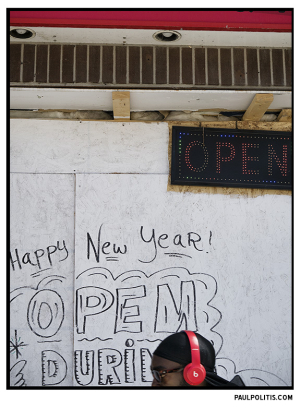 OPEN
Happy New Year!
OPEN
DURIN
b
PAULPOLITIS.COM